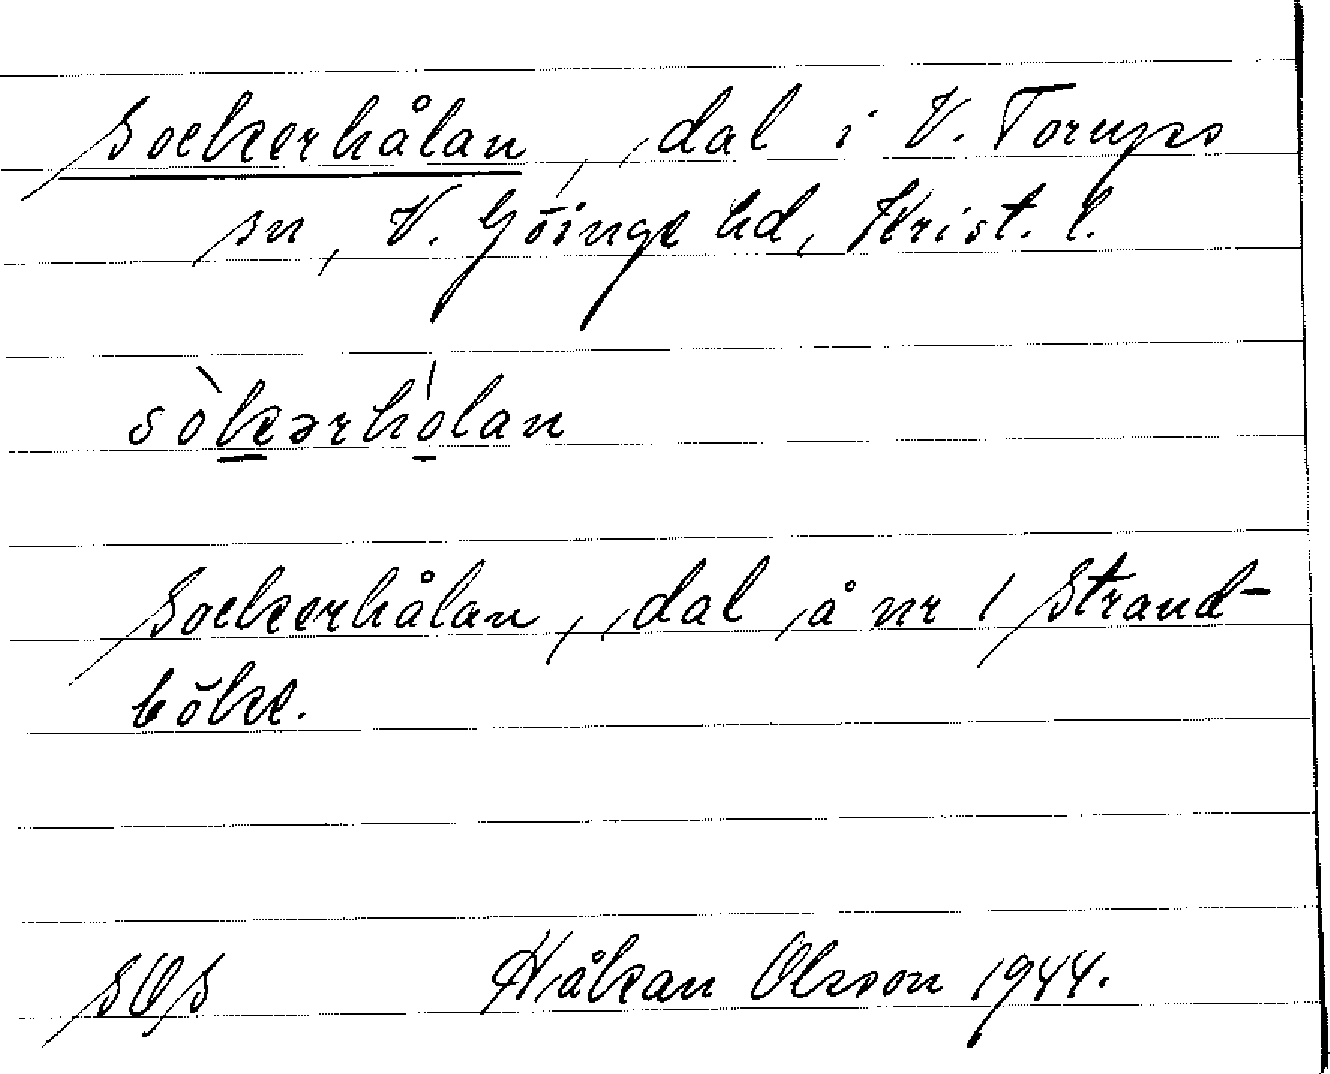 Sockerhålan, dal i V. Torups
sn, V. Göinge hd, Krist. l.
sòkərhólan
Sockerhålan, dal å nr 1 Strand-
böke.
SOS Håkan Olsson 1944.